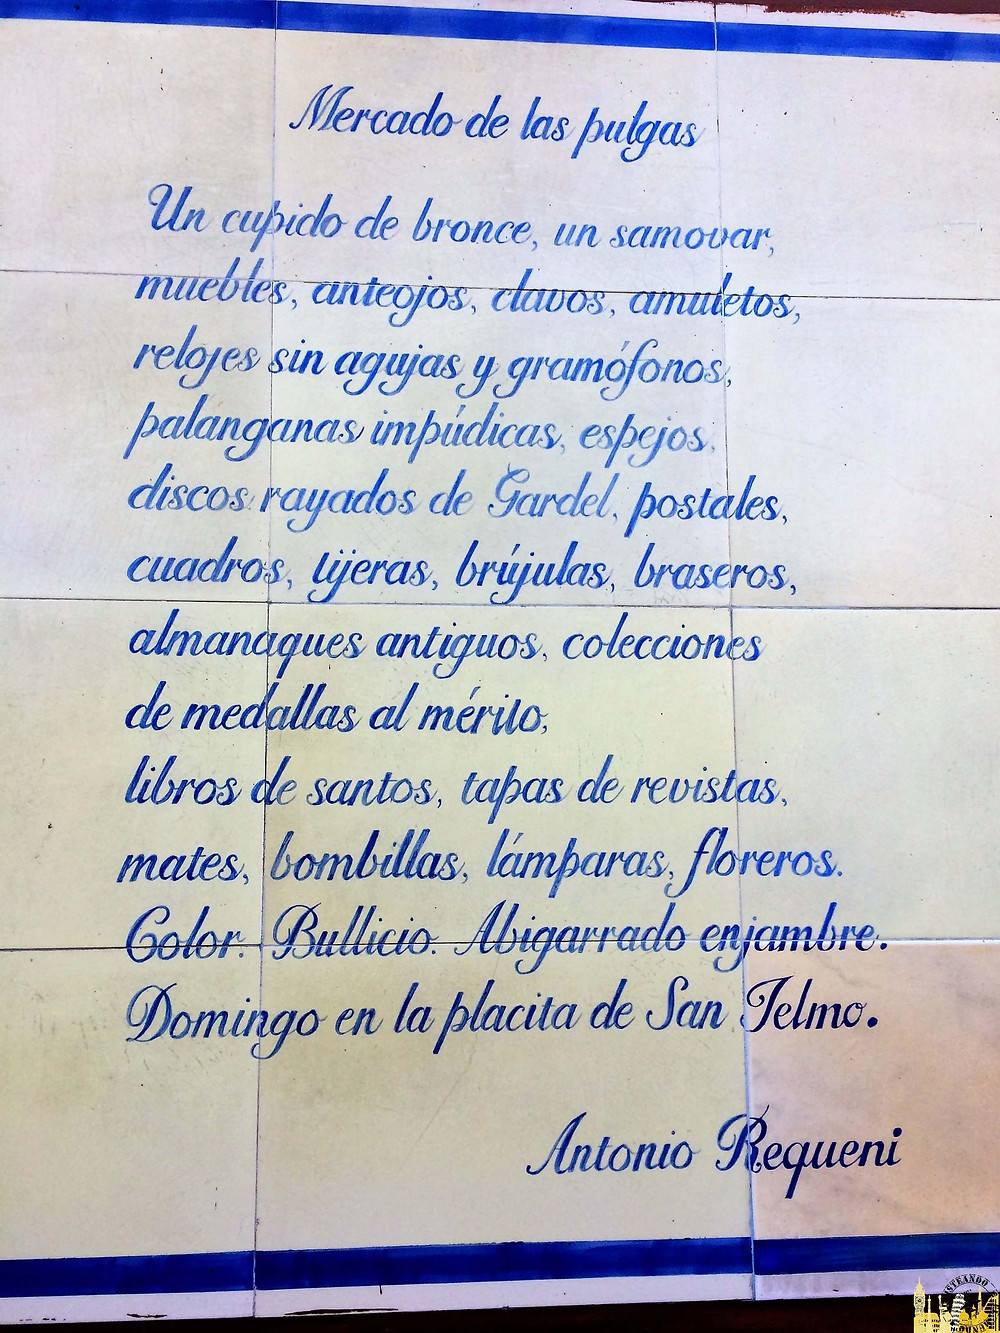 Mercado de las pulgas
Un cupido de bronce, un samovar,
muebles, anteojos, clavos, amuletos,
relojes sin agujas y gramófonos,
palanganas impúdicas, espejos,
discos rayados de Gardel, postales,
cuadros, tijeras, brújulas, braseros,
almanaques antiguos, colecciones
de medallas al mérito,
libros de santos, tapas de revistas,
mates, bombillas, lámparas, floreros.
Color. Bullicio. Abigarrado enjambre.
Domingo en la placita de San Telmo.
Antonio Requeni